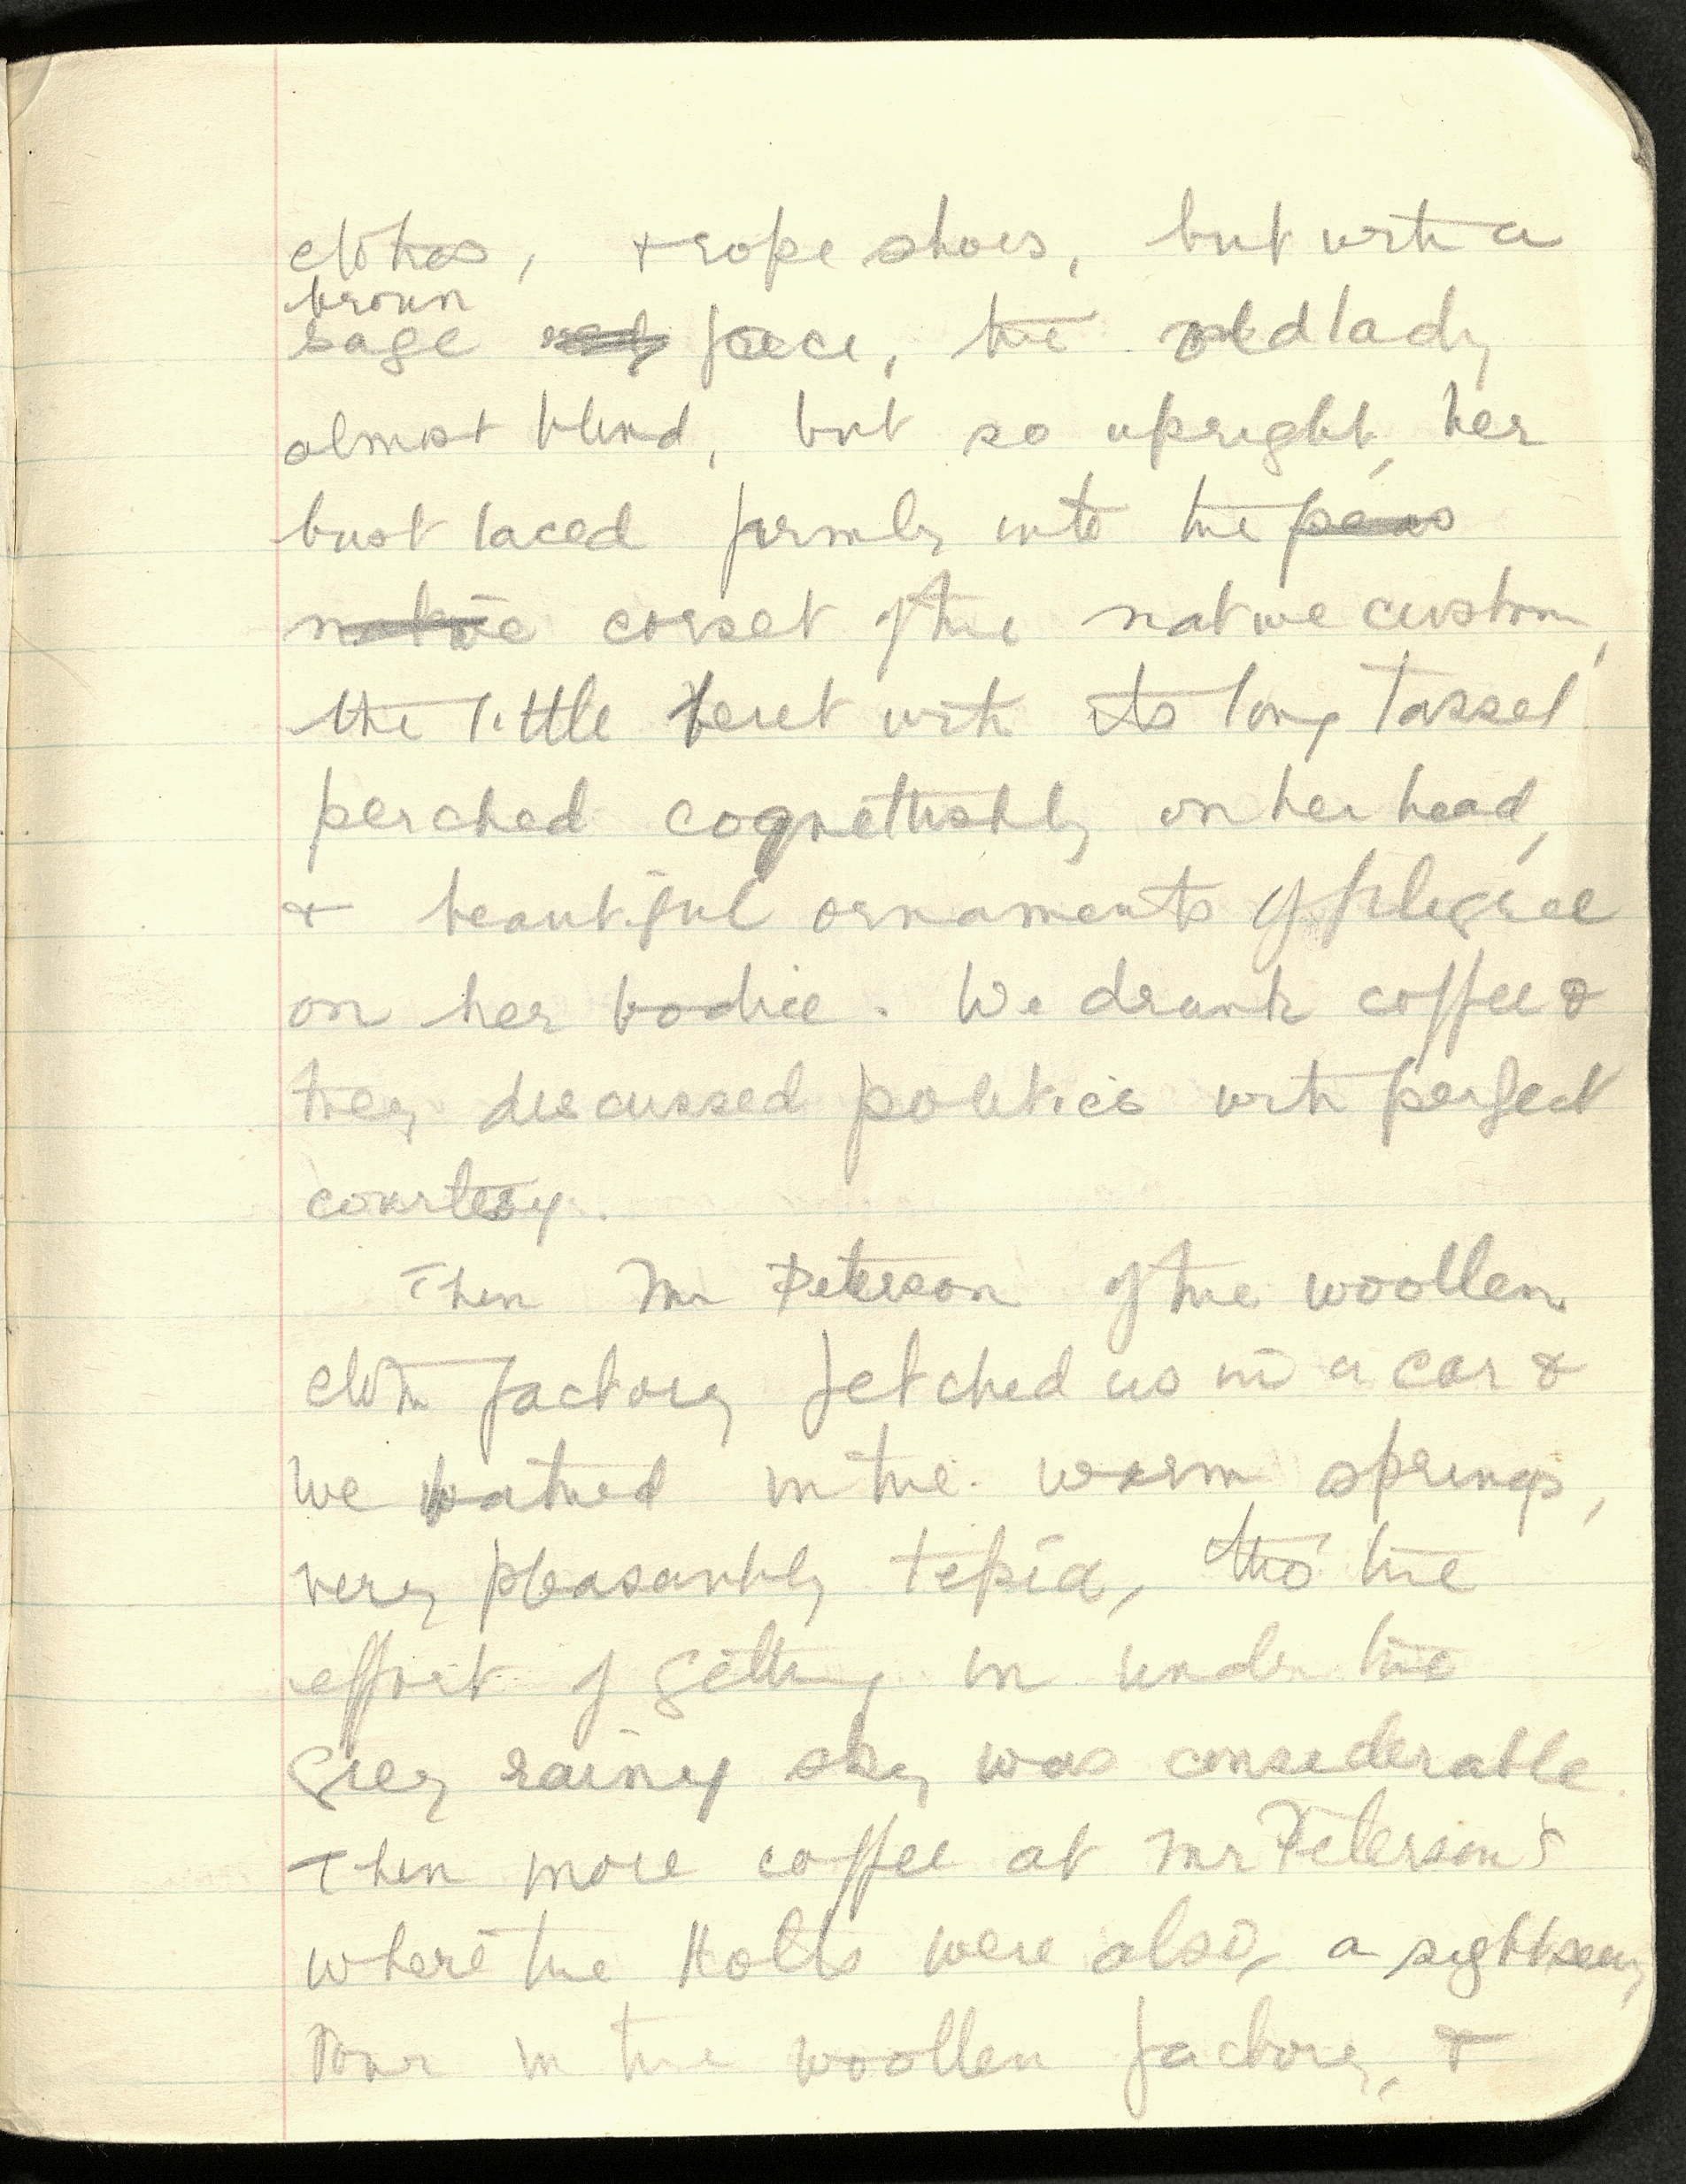 clothes, + rope shoes, but with a
brown
sage face, the old lady
almost blind, but so upright, her
bust laced firmly into the peas
native corset of the native custom,
the little beret with its long tassel
perched coquettishly on her head,
& beautiful ornaments of filigree
on her bodice. We drank coffee &
they discussed politics with perfect
courtesy.
Then Mr Peterson of the woollen
cloth factory fetched us in a car &
we bathed in the warm springs,
very pleasantly tepid, tho' the
effort of getting in under the
grey rainy sky was considerable.
Then more coffee at Mr Peterson's
where the Holts were also, a sightseeing
tour in the woollen factory, &